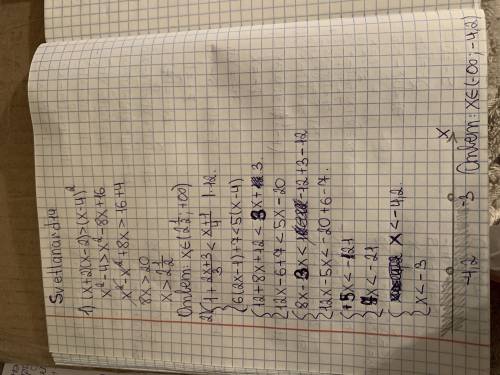 Svetlanaivd14
1) (x+2)(x-2)>(x-4)²
x²-4>x²-8x+16
x²-x²+8x>16+4
8x>20
x>2 1/2
Ответ: x∈(2 1/2; +∞)
2) { 1 + 2x+3/3 < x+1/4 |·12.
{ 6(2x-1)+7<5(x-4)
{ 12+8x+12<3x+3
{ 12x-6+7<5x-20
{ 8x-3x< -12+3-12
{ 12x-5x<-20+6-7.
{ +5x<-21
{ 7x<-21
{ x<-4,2
{ x<-3
-4,2 -3 x
Ответ: x∈(-∞; -4,2)